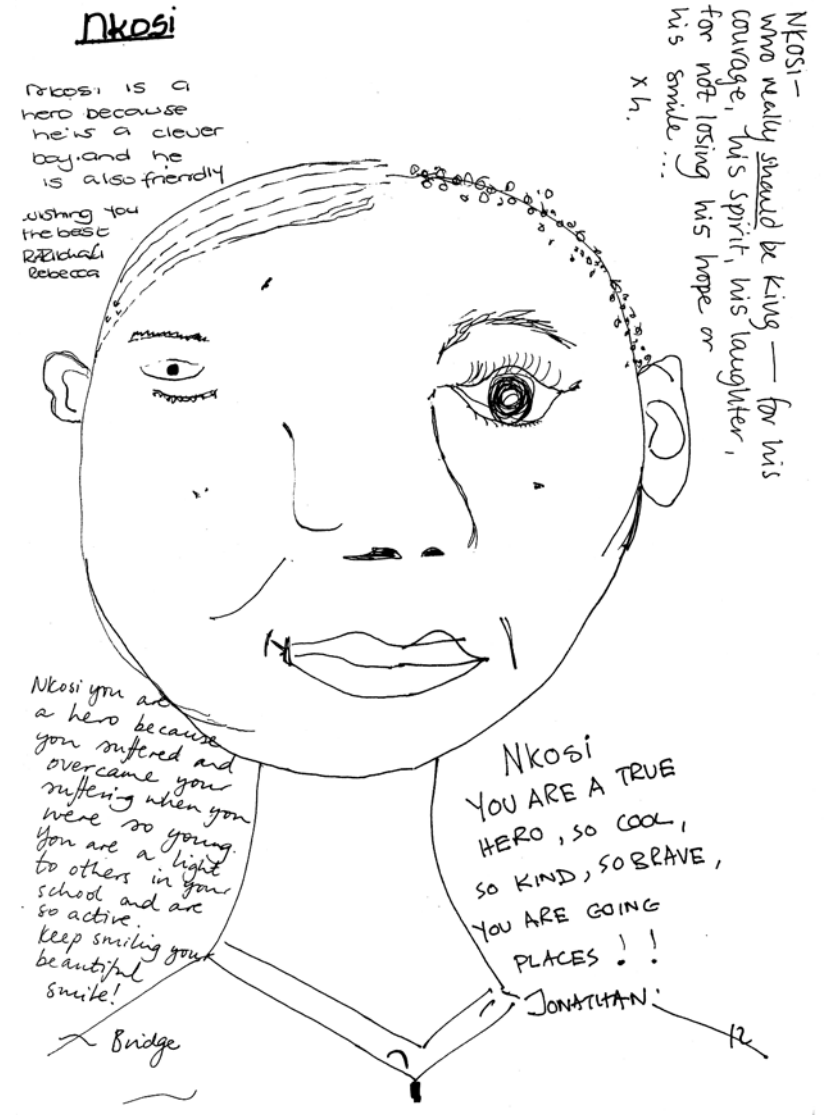 Nkosi
Nkosi is a
hero because
he is a clever
boy.and he
is also friendly
wishing you
the best
Rebecca
NKOSI –
who really should be King — for his
courage, his spirit, his laughter,
for not losing his hope or
his smile ...
x h.
Nkosi you are
a hero because
you suffered and
overcame your
suffering when you
were so young.
You are a light
to others in your
school and are
so active.
Keep smiling your
beautiful
smile!
Bridge
NKOSI
YOU ARE A TRUE
HERO, SO COOL,
SO KIND, SO BRAVE,
YOU ARE GOING
PLACES !!
JONATHAN.